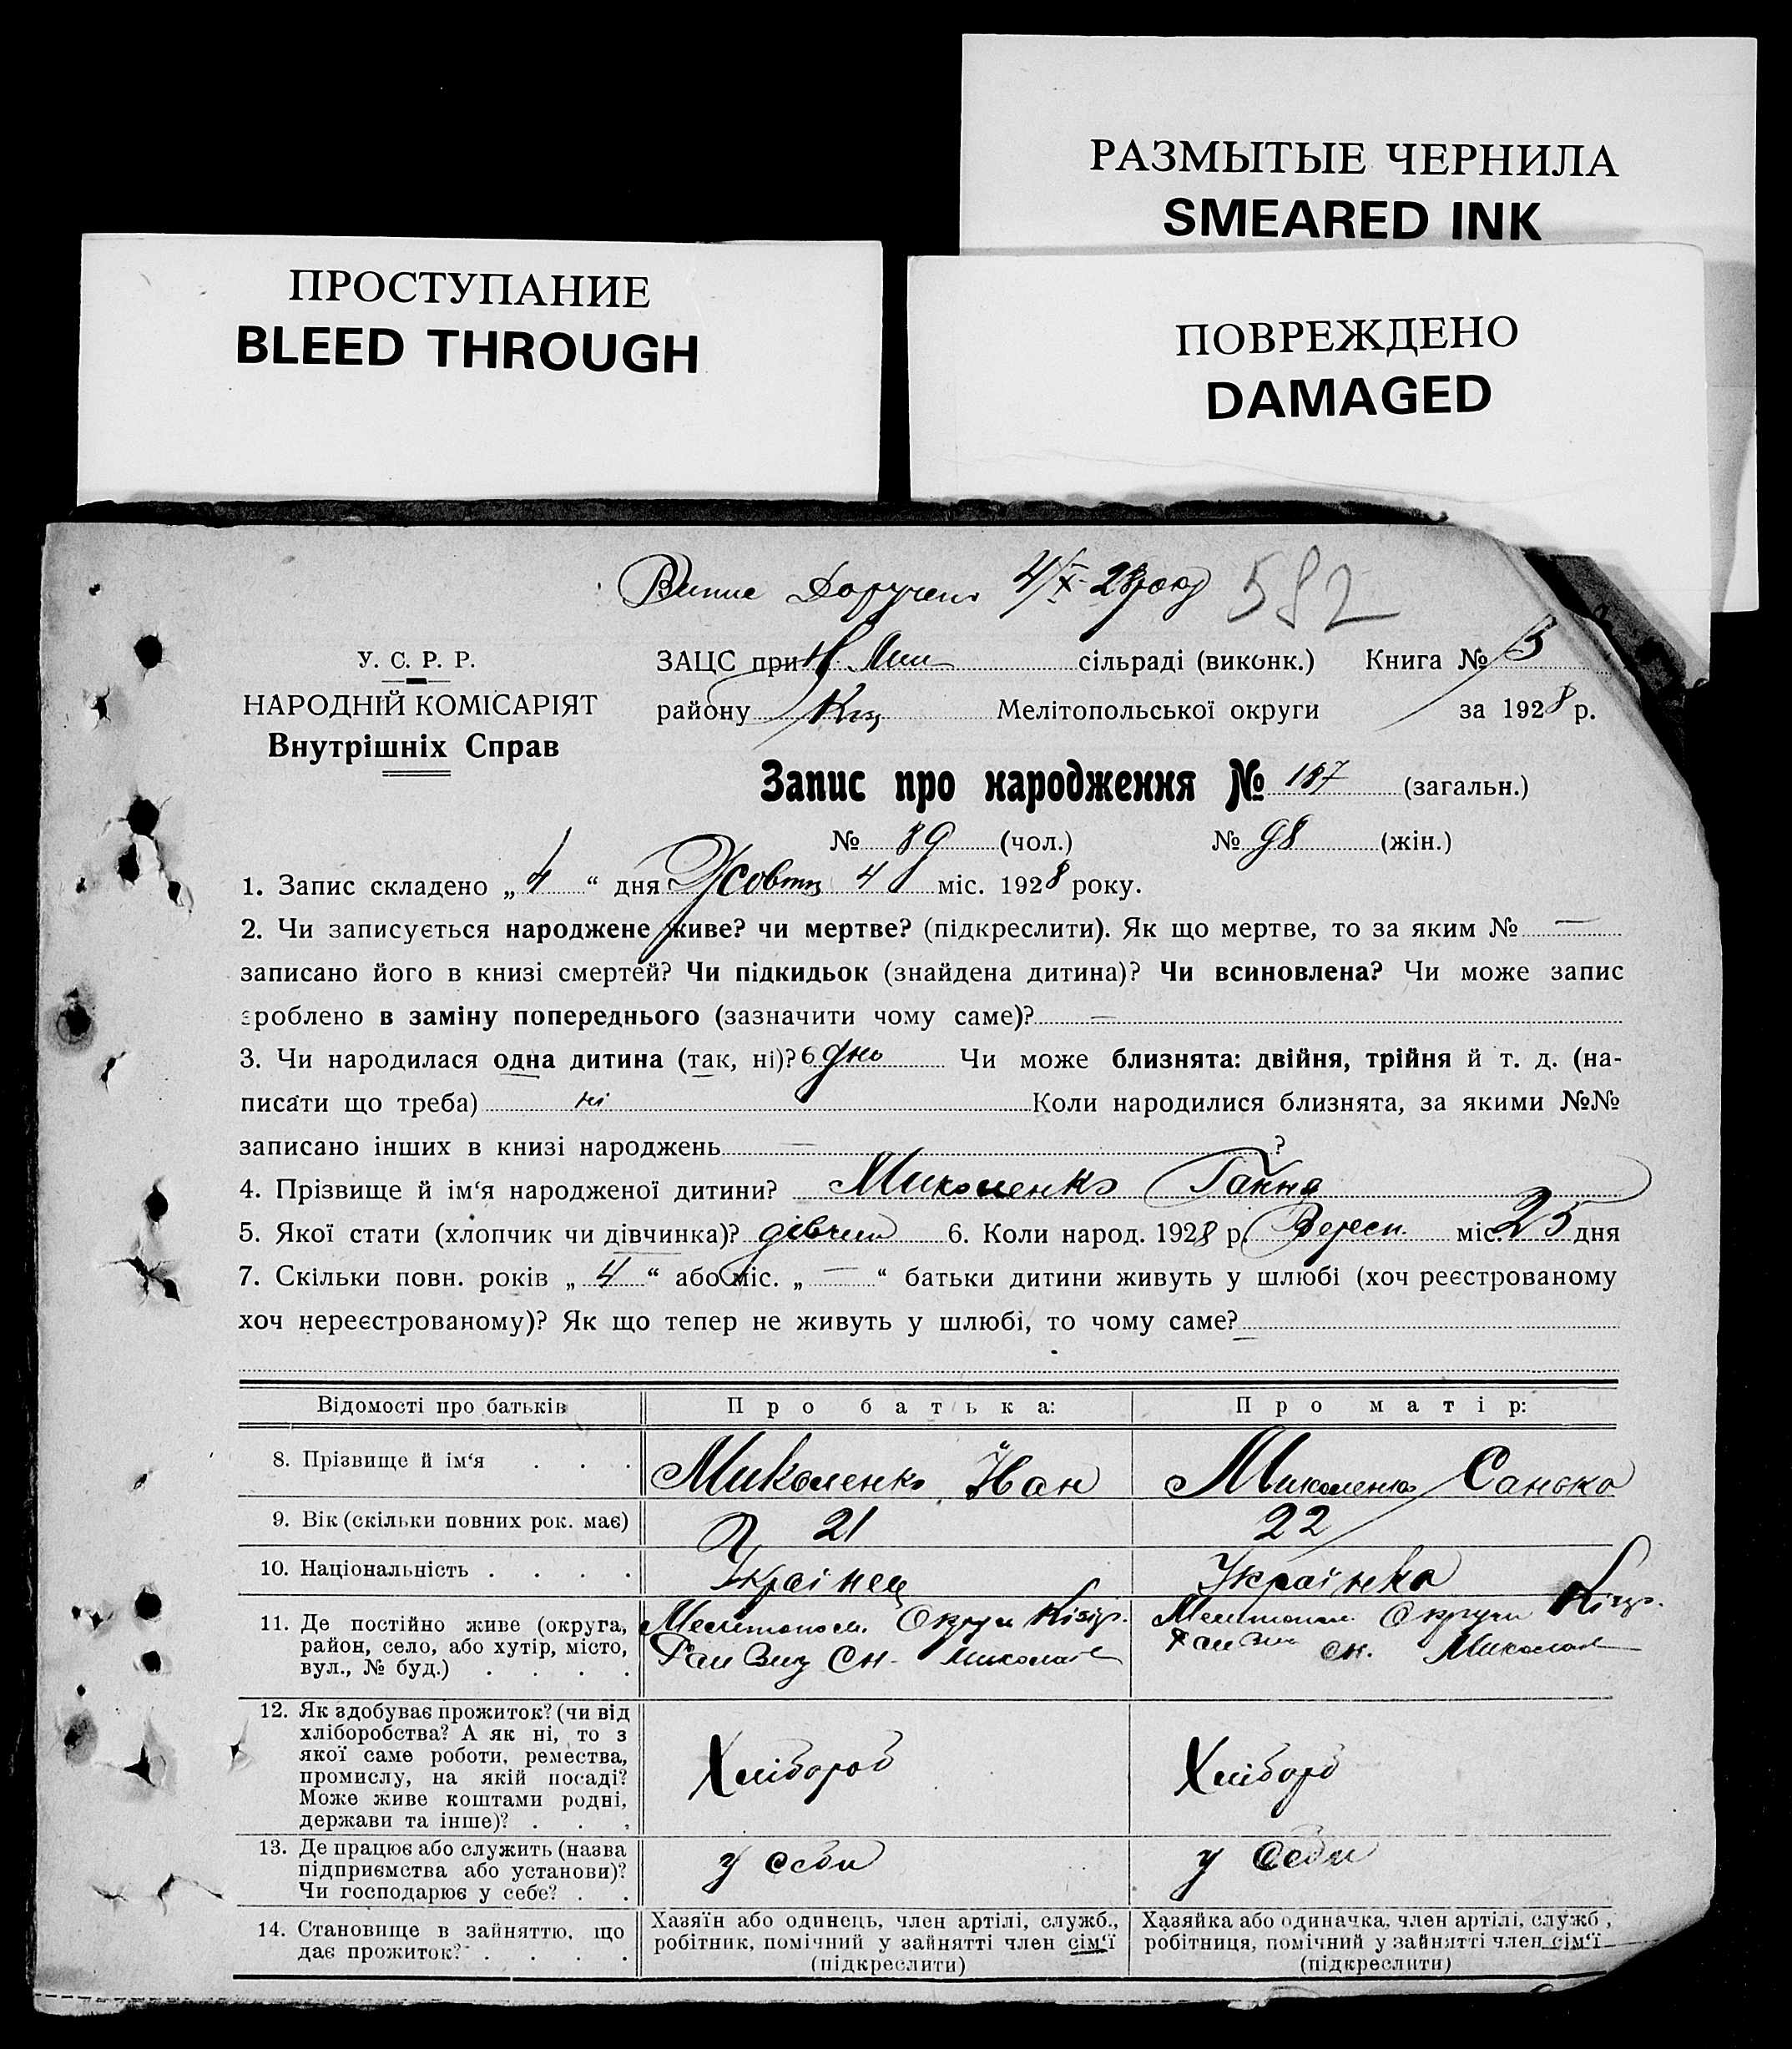 РАЗМЫТЫЕ ЧЕРНИЛА
SMEARED INK
ПРОСТУПАНИЕ
BLEED THROUGH
ПОВРЕЖДЕНО
DAMAGED
4/X-28 року 582
У. С. Р. Р.
НАРОДНІЙ КОМІСАРІЯТ
Внутрішніх Справ
ЗАЦС при сільраді (виконк.) Книга №
району Мелітопольської округи за 1928 р.
Запис про народження № 187 (загальн.)
№ 89 (чол.) № 98 (жін.)
1. Запис складено „ 4 “ дня Жовтн 4 міс. 1928 року.
2. Чи записується народжене живе? чи мертве? (підкреслити). Як що мертве, то за яким № —
записано його в книзі смертей? Чи підкидьок (знайдена дитина)? Чи всиновлена? Чи може запис
зроблено в заміну попереднього (зазначити чому саме)? —
3. Чи народилася одна дитина (так, ні)? Чи може близнята: двійня, трійня й т. д. (на-
писати що треба) ні Коли народилися близнята, за якими №№
записано інших в книзі народжень — ?
4. Прізвище й ім‘я народженої дитини? Миколенко Ганна
5. Якої стати (хлопчик чи дівчинка)? дівчин 6. Коли народ. 1928 р. Вересн. міс. 25 дня
7. Скільки повн. років „ 4 “ або міс. „ — “ батьки дитини живуть у шлюбі (хоч реєстрованому
хоч нереєстрованому)? Як що тепер не живуть у шлюбі, то чому саме? —
Відомості про батьків Про батька: Про матір:
8. Прізвище й ім‘я . . . Миколенко Іван Миколенко Санька
9. Вік (скільки повних рок. має) 21 22
10. Національність . . . . Українец Українка
11. Де постійно живе (округа, Мелитопол. Округи Кізір. Мелитопол. Округи Кізир.
район, село, або хутір, місто, сн. Миколає сн. Миколає
вул., № буд.) . . . .
12. Як здобуває прожиток? (чи від
хліборобства? А як ні, то з
якої саме роботи, ремества, Хлібороб Хлібороб
промислу, на якій посаді?
Може живе коштами родні,
держави та інше)? . . .
13. Де працює або служить (назва у себи у себи
підприємства або установи)?
Чи господарює у себе? . .
14. Становище в зайняттю, що Хазяїн або одинець, член артілі, служб., Хазяйка або одиначка, член артілі, служб.,
дає прожиток? . . . . робітник, помічний у зайнятті член сім‘ї робітниця, помічний у зайнятті член сім‘ї
(підкреслити) (підкреслити)